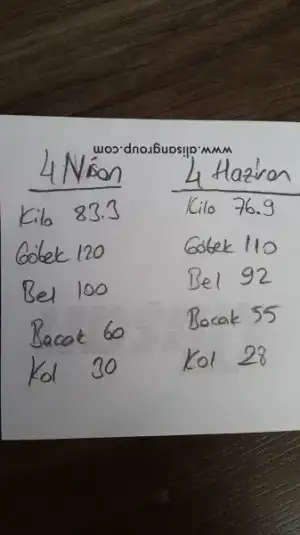 www.alisangroup.com
4 Nisan 4 Haziran
Kilo 83.3 Kilo 76.9
Göbek 120 Göbek 110
Bel 100 Bel 92
Bacak 60 Bacak 55
Kol 30 Kol 28